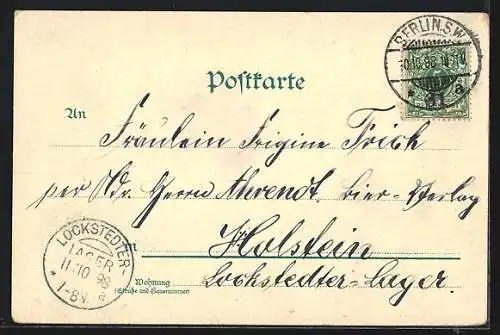 BERLIN.S.W.
10.10.98
a
Postkarte
An
Fräulein Frigine Frich
per Adr. Herrn Ahrendt, Bier-Verlag
in Holstein
Lockstedter-Lager.
Wohnung
(Straße und Hausnummer)
LOCKSTEDTER-
LAGER
11.10 98
* 1-8V. a